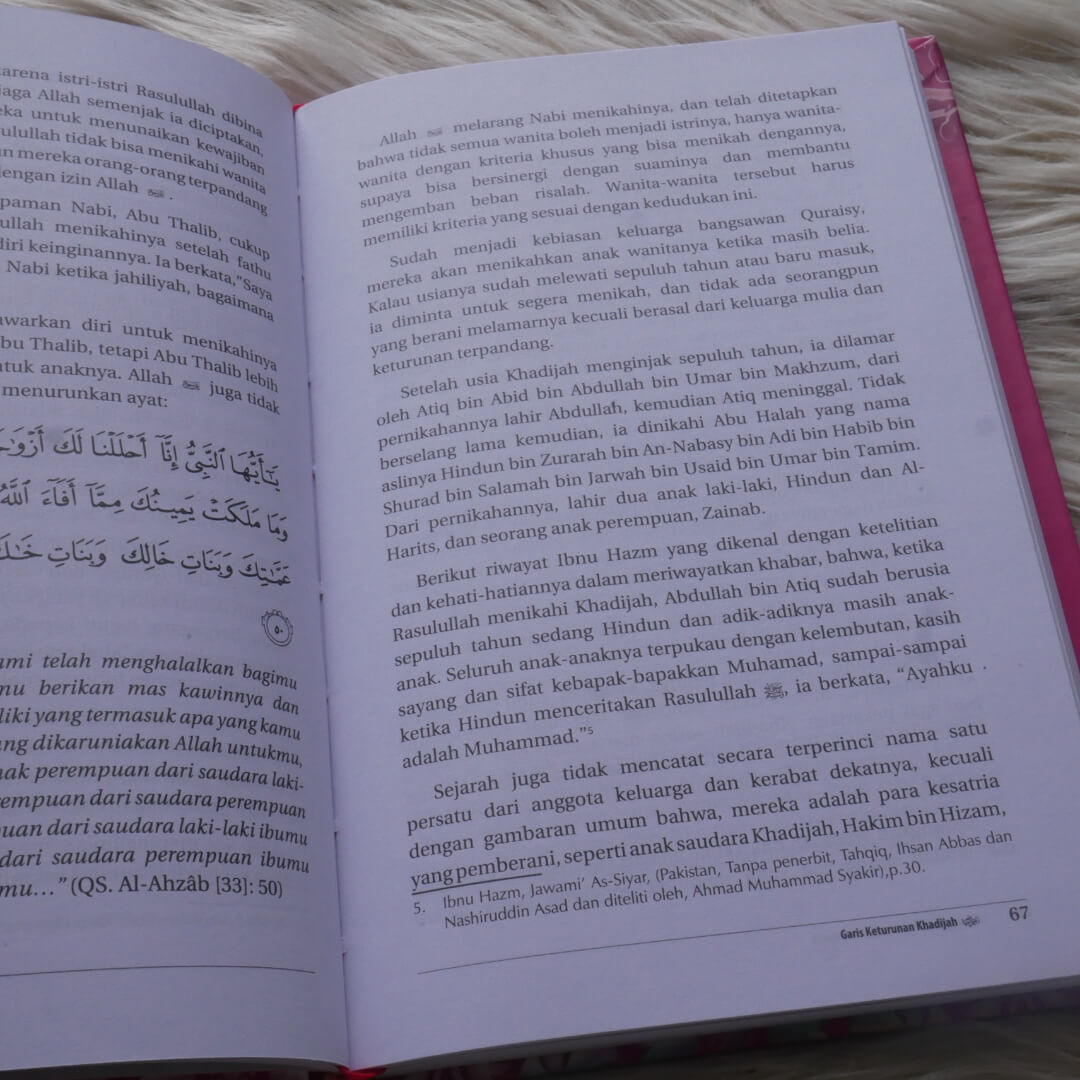 karena istri-istri Rasulullah dibina
jaga Allah semenjak ia diciptakan,
eka untuk menunaikan kewajiban
ulullah tidak bisa menikahi wanita
n mereka orang-orang terpandang
dengan izin Allah ﷻ .
paman Nabi, Abu Thalib, cukup
ullah menikahinya setelah fathu
diri keinginannya. Ia berkata,"Saya
Nabi ketika jahiliyah, bagaimana
awarkan diri untuk menikahinya
bu Thalib, tetapi Abu Thalib lebih
ntuk anaknya. Allah ﷻ juga tidak
menurunkan ayat:
يَٰٓأَيُّهَا ٱلنَّبِىُّ إِنَّآ أَحْلَلْنَا لَكَ أَزْوَٰجَ
وَمَا مَلَكَتْ يَمِينُكَ مِمَّآ أَفَآءَ ٱللَّهُ
عَمَّٰتِكَ وَبَنَاتِ خَالِكَ وَبَنَاتِ خَٰلَٰتِكَ
٥٠
ami telah menghalalkan bagimu
mu berikan mas kawinnya dan
liki yang termasuk apa yang kamu
ang dikaruniakan Allah untukmu,
nak perempuan dari saudara laki-
rempuan dari saudara perempuan
puan dari saudara laki-laki ibumu
dari saudara perempuan ibumu
mu…" (QS. Al-Ahzâb [33]: 50)
Allah ﷻ melarang Nabi menikahinya, dan telah ditetapkan
bahwa tidak semua wanita boleh menjadi istrinya, hanya wanita-
wanita dengan kriteria khusus yang bisa menikah dengannya,
supaya bisa bersinergi dengan suaminya dan membantu
mengemban beban risalah. Wanita-wanita tersebut harus
memiliki kriteria yang sesuai dengan kedudukan ini.
Sudah menjadi kebiasan keluarga bangsawan Quraisy,
mereka akan menikahkan anak wanitanya ketika masih belia.
Kalau usianya sudah melewati sepuluh tahun atau baru masuk,
ia diminta untuk segera menikah, dan tidak ada seorangpun
yang berani melamarnya kecuali berasal dari keluarga mulia dan
keturunan terpandang.
Setelah usia Khadijah menginjak sepuluh tahun, ia dilamar
oleh Atiq bin Abid bin Abdullah bin Umar bin Makhzum, dari
pernikahannya lahir Abdullah, kemudian Atiq meninggal. Tidak
berselang lama kemudian, ia dinikahi Abu Halah yang nama
aslinya Hindun bin Zurarah bin An-Nabasy bin Adi bin Habib bin
Shurad bin Salamah bin Jarwah bin Usaid bin Umar bin Tamim.
Dari pernikahannya, lahir dua anak laki-laki, Hindun dan Al-
Harits, dan seorang anak perempuan, Zainab.
Berikut riwayat Ibnu Hazm yang dikenal dengan ketelitian
dan kehati-hatiannya dalam meriwayatkan khabar, bahwa, ketika
Rasulullah menikahi Khadijah, Abdullah bin Atiq sudah berusia
sepuluh tahun sedang Hindun dan adik-adiknya masih anak-
anak. Seluruh anak-anaknya terpukau dengan kelembutan, kasih
sayang dan sifat kebapak-bapakkan Muhamad, sampai-sampai
ketika Hindun menceritakan Rasulullah ﷺ, ia berkata, "Ayahku
adalah Muhammad."⁵
Sejarah juga tidak mencatat secara terperinci nama satu
persatu dari anggota keluarga dan kerabat dekatnya, kecuali
dengan gambaran umum bahwa, mereka adalah para kesatria
yang pemberani, seperti anak saudara Khadijah, Hakim bin Hizam,
5. Ibnu Hazm, Jawami' As-Siyar, (Pakistan, Tanpa penerbit, Tahqiq, Ihsan Abbas dan
Nashiruddin Asad dan diteliti oleh, Ahmad Muhammad Syakir),p.30.
Garis Keturunan Khadijah 67